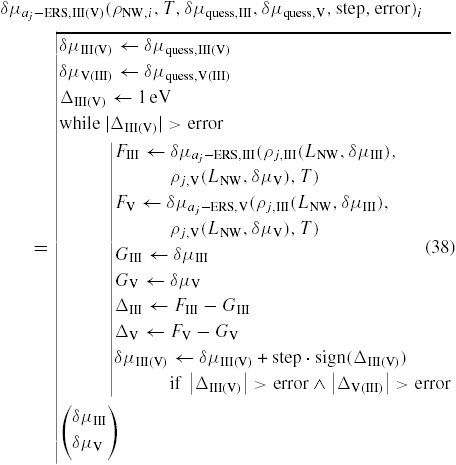 δμ_{a_j−ERS,III(V)}(ρ_{NW,i}, T, δμ_{quess,III}, δμ_{quess,V}, step, error)_i
δμ_{III(V)} ← δμ_{quess,III(V)}
δμ_{V(III)} ← δμ_{quess,V(III)}
Δ_{III(V)} ← 1 eV
while |Δ_{III(V)}| > error
F_{III} ← δμ_{a_j−ERS,III}(ρ_{j,III}(L_{NW}, δμ_{III}),
ρ_{j,V}(L_{NW}, δμ_V), T)
F_V ← δμ_{a_j−ERS,V}(ρ_{j,III}(L_{NW}, δμ_{III}),
ρ_{j,V}(L_{NW}, δμ_V), T)
= G_{III} ← δμ_{III} (38)
G_V ← δμ_V
Δ_{III} ← F_{III} − G_{III}
Δ_V ← F_V − G_V
δμ_{III(V)} ← δμ_{III(V)} + step · sign(Δ_{III(V)})
if |Δ_{III(V)}| > error ∧ |Δ_{V(III)}| > error
(δμ_{III}
δμ_V)